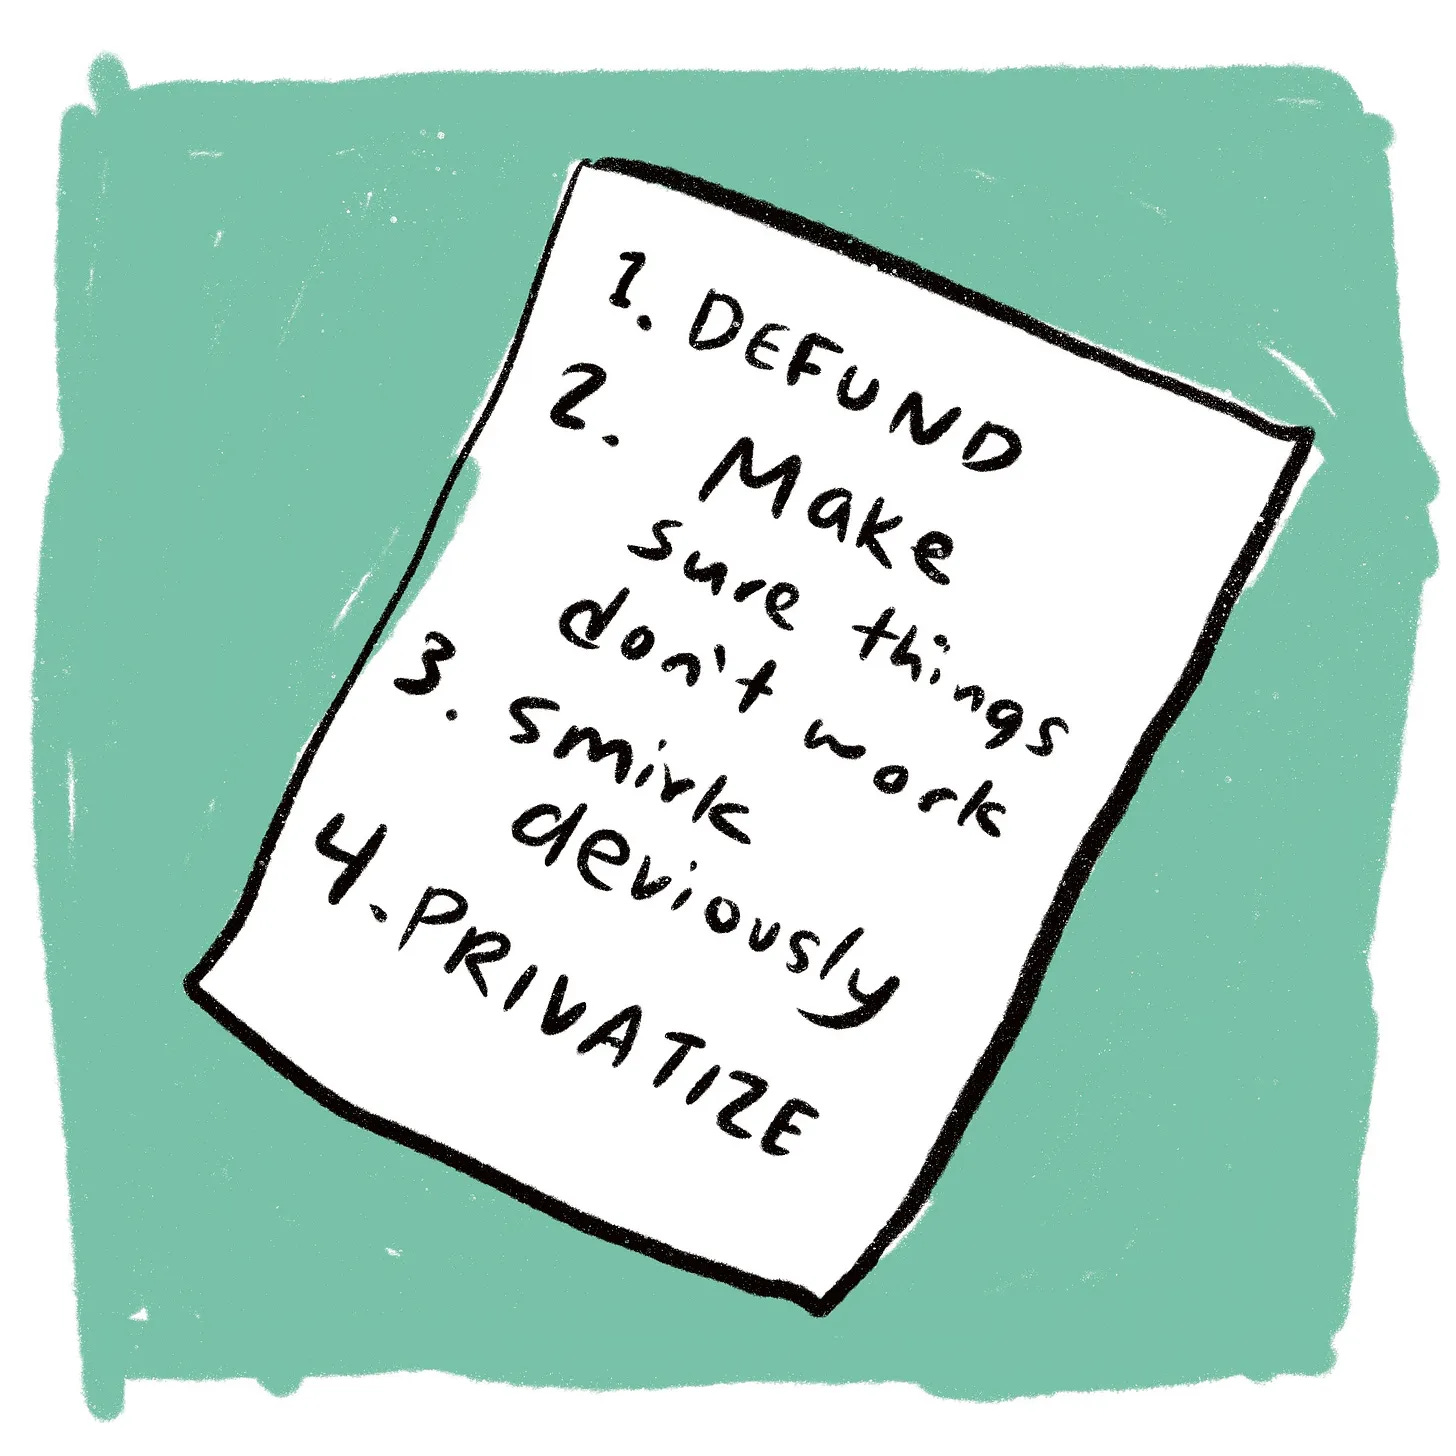 1. DEFUND
2. Make
sure things
don't work
3. smirk
deviously
4. PRIVATIZE